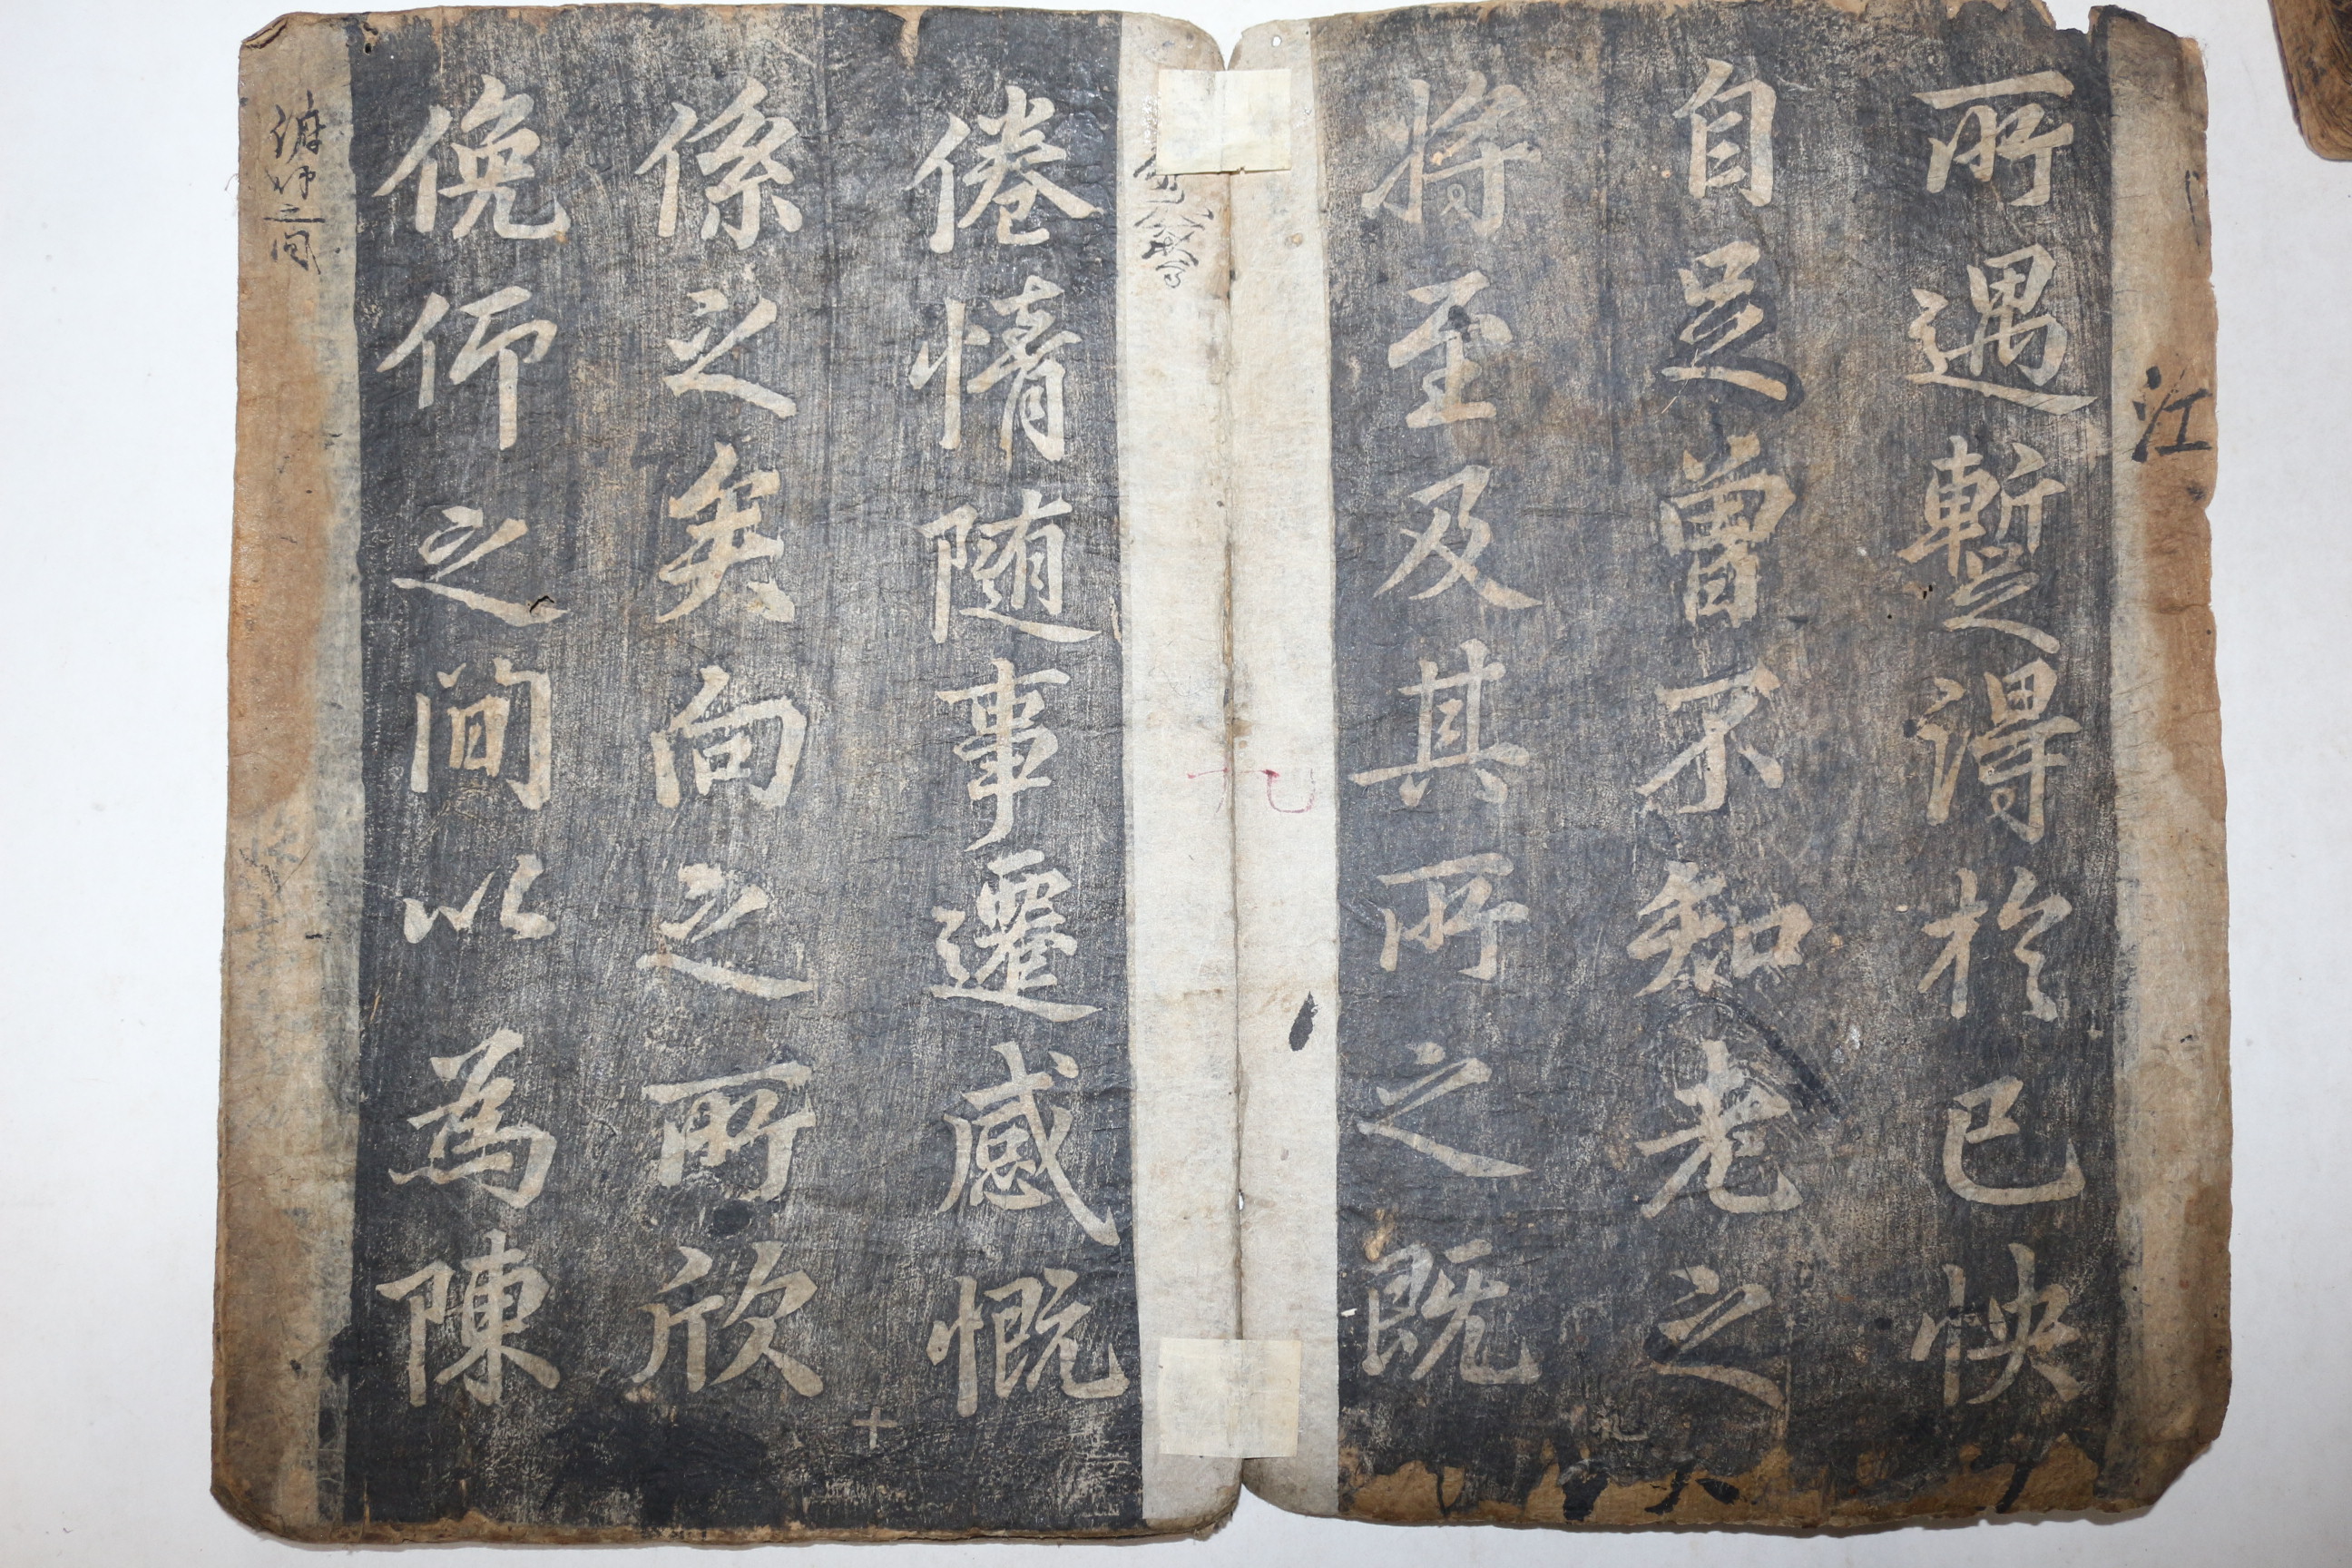 所遇蹔得於已怏
自足曾不知老之
將至及其所之既
九
江
十九
倦情随事遷感慨
係之矣向之所欣
俛仰之間以為陳
十
俯仰之间